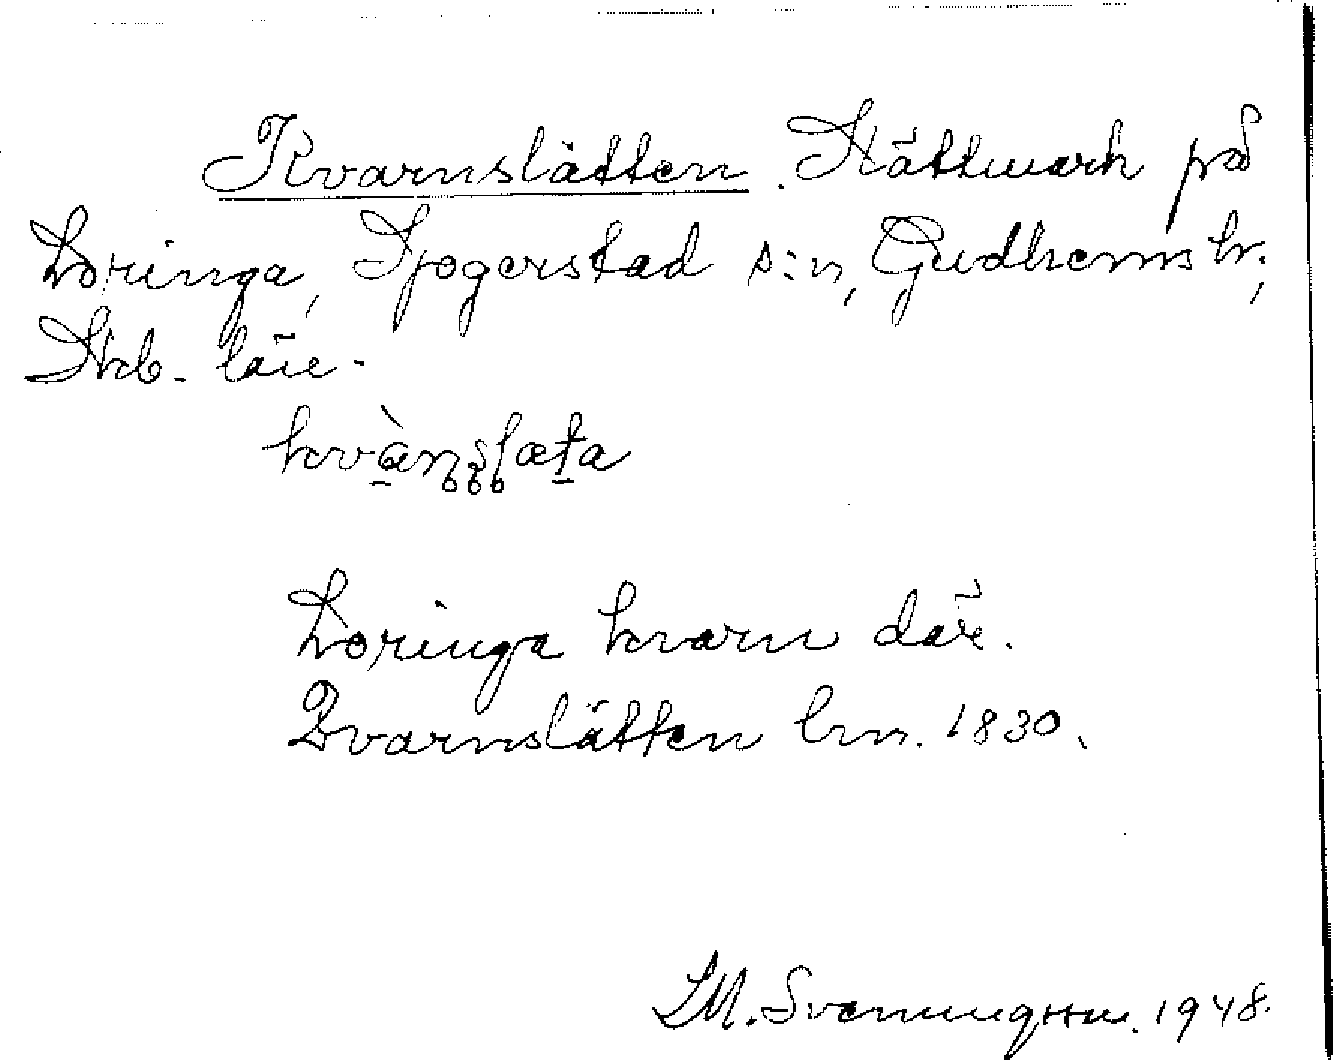 Kvarnslätten. Slättmark på
Loringa, Sjogerstad s:n, Gudhems hr.,
Skb. län.
kvàn̥s̥l̥æta
Loringa kvarn där.
Qvarnslätten lm. 1830.
Svenningsson. 1948.